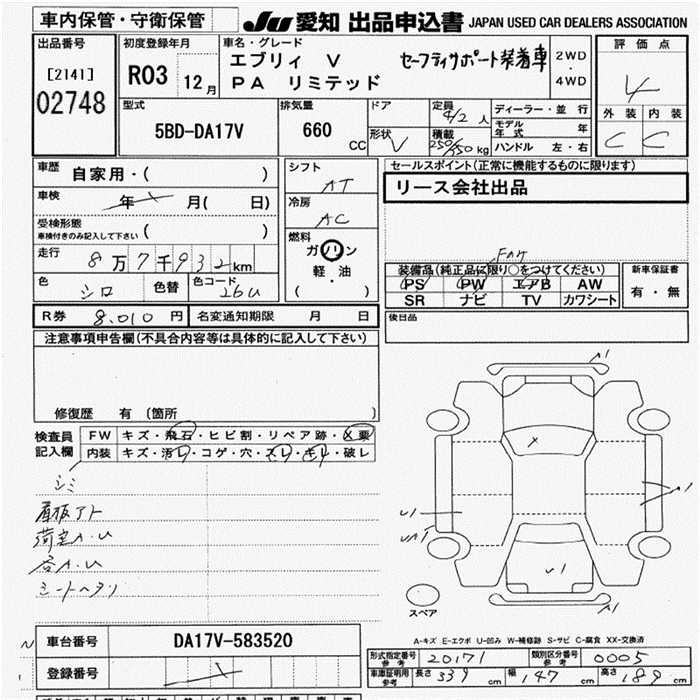 車内保管・守衛保管 JU 愛知 出品申込書 JAPAN USED CAR DEALERS ASSOCIATION
出品番号 初度登録年月 車名・グレード 評価点
[2141] R03 12月 エブリィ V セーフティサポート装着車 2WD・4WD 4
02748 PA リミテッド
外装 内装
C C
型式 排気量 ドア 定員 4/2人 ディーラー・並行
5BD-DA17V 660 CC 形状 V 積載 250/350 kg モデル年式 年
ハンドル 左・右
車歴 自家用・( ) シフト AT セールスポイント(正常に機能するものに限ります)
車検 年 月( 日) 冷房 AC リース会社出品
受検形態 車検付きのみ記入して下さい ( )
走行 8万7千932km 燃料 ガソリン・軽・油 ( )
色 シロ 色替 色コード 26U
装備品(純正品に限り○をつけてください) 新車保証書
PS PW エアB AW 有・無
SR ナビ TV カワシート
R券 8.010円 名変通知期限 月 日 後日品
注意事項申告欄(不具合内容等は具体的に記入して下さい)
修復歴 有 〔箇所 〕
検査員記入欄 FW キズ・飛石・ヒビ割・リペア跡・X要
内装 キズ・汚レ・コゲ・穴・スレ・キレ・破レ
シミ
看板アト
荷室A.U
シートヘタリ
A1
X
A1
U1
U1
A1
スペア
A-キズ E-エクボ U-凹み W-補修跡 S-サビ C-腐食 XX-交換済
車台番号 DA17V-583520
登録番号
形式指定番号 参考 20171 類別区分番号 参考 0005
車庫証明用 参考 長さ 339 cm 幅 147 cm 高さ 189 cm